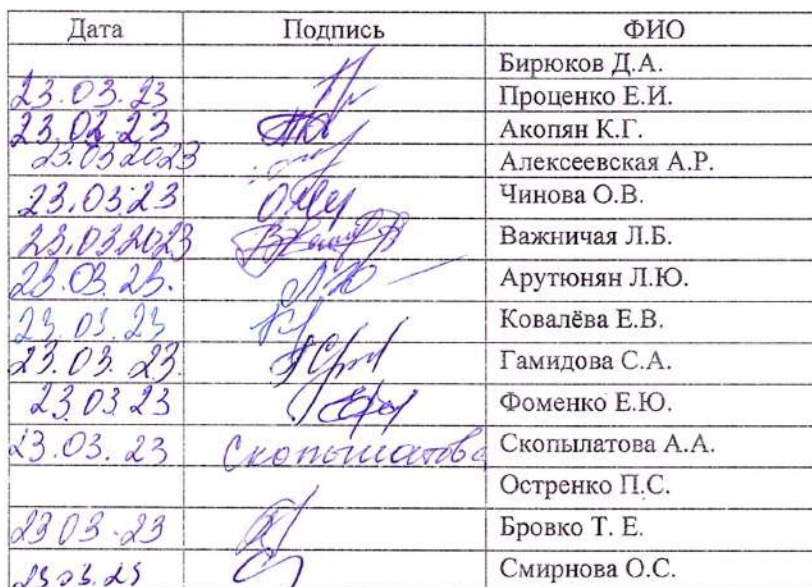 Дата Подпись ФИО
Бирюков Д.А.
23.03.23 Проценко Е.И.
23.03.23 Акопян К.Г.
23.03.2023 Алексеевская А.Р.
23.03.23 Чинова О.В.
23.03.2023 Важничая Л.Б.
23.03.23. Арутюнян Л.Ю.
23.03.23 Ковалёва Е.В.
23.03.23. Гамидова С.А.
23.03.23 Фоменко Е.Ю.
23.03.23 Скопылатова Скопылатова А.А.
Остренко П.С.
23 03.23 Бровко Т. Е.
23.03.23 Смирнова О.С.